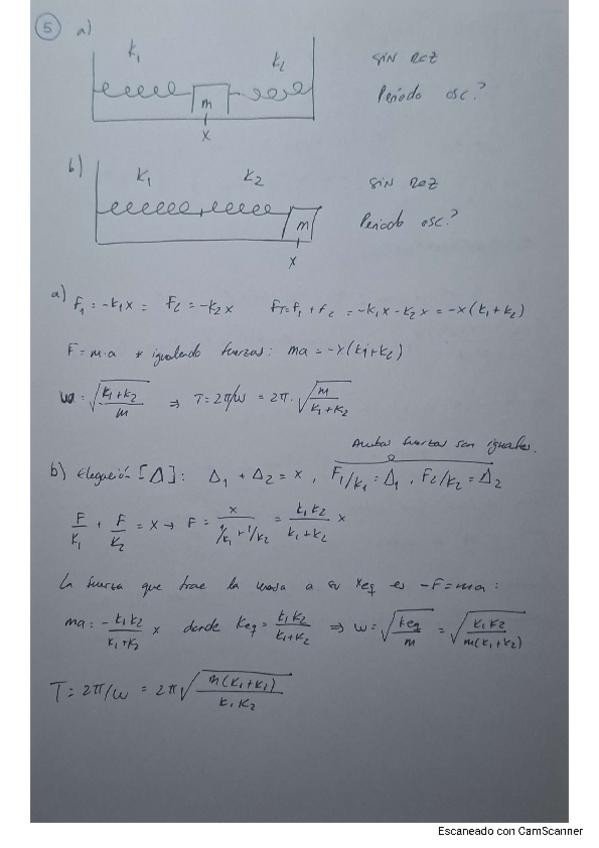 5 a)
K₁ K₂ SIN ROZ
m Periodo osc.?
x
b)
K₁ K₂ SIN ROZ
m Periodo osc?
x
a) F₁ = -K₁x = F₂ = -K₂x FT = f₁ + f₂ = -K₁x - K₂x = -x(K₁+K₂)
F = m·a igualando fuerzas: ma = -x(K₁+K₂)
ω = √((K₁+K₂)/m) ⇒ T = 2π/ω = 2π·√(m/(K₁+K₂))
Ambas fuerzas son iguales.
b) Elongación [Δ]: Δ₁ + Δ₂ = x, F₁/K₁ = Δ₁, F₂/K₂ = Δ₂
F/K₁ + F/K₂ = x → F = x/(1/K₁ + 1/K₂) = K₁K₂/(K₁+K₂) x
La fuerza que trae la masa a su xeq es -F = ma:
ma = -K₁K₂/(K₁+K₂) x donde Keq = K₁K₂/(K₁+K₂) ⇒ ω = √(Keq/m) = √(K₁K₂/(m(K₁+K₂)))
T = 2π/ω = 2π√(m(K₁+K₁)/(K₁K₂))
Escaneado con CamScanner